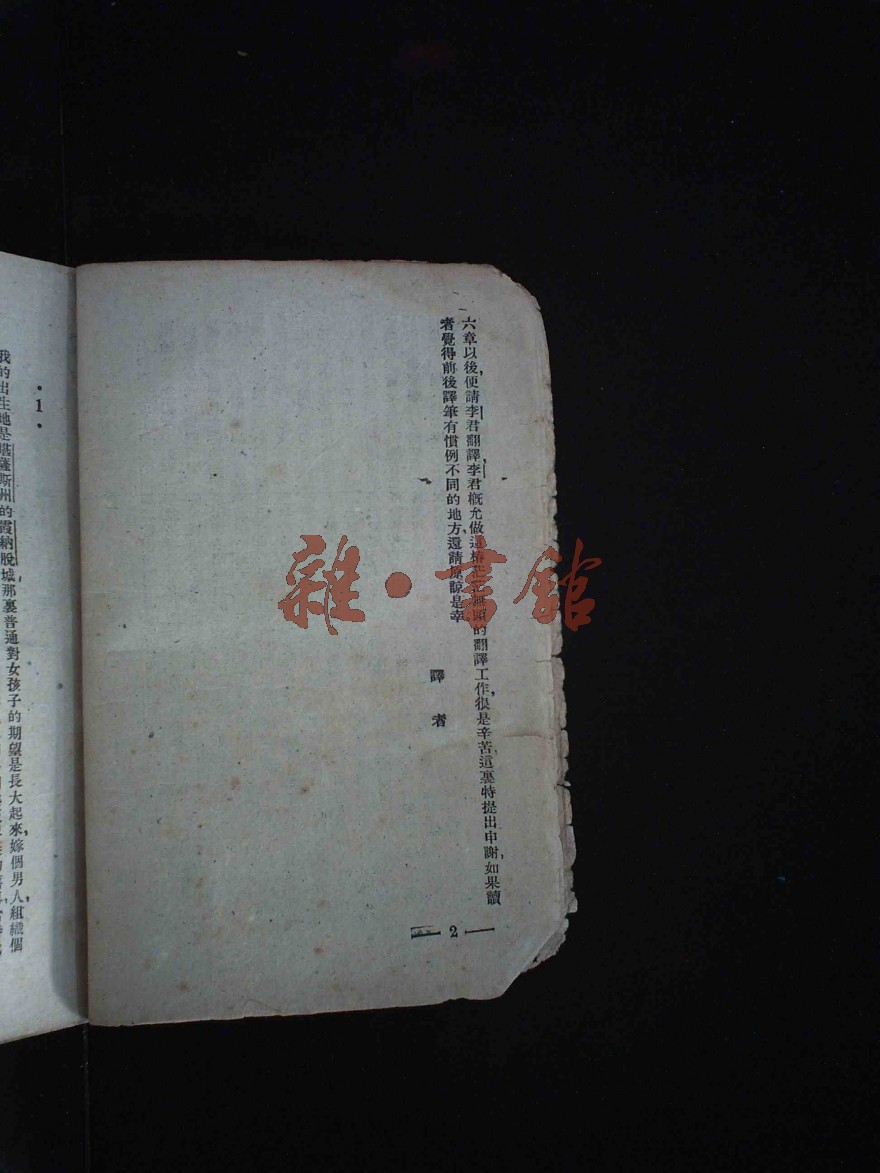 六章以後，便請李君翻譯，李君概允做這樁
無頭的翻譯工作，很是辛苦，這裏特提出申謝，如果讀
者覺得前後譯筆有慣例不同的地方，還請原諒是幸
譯者
— 2 —
·1·
我的出生地是堪薩斯州的霞納脫城，那裏普通對女孩子的期望是長大起來，嫁個男人，組織個
雜·書館